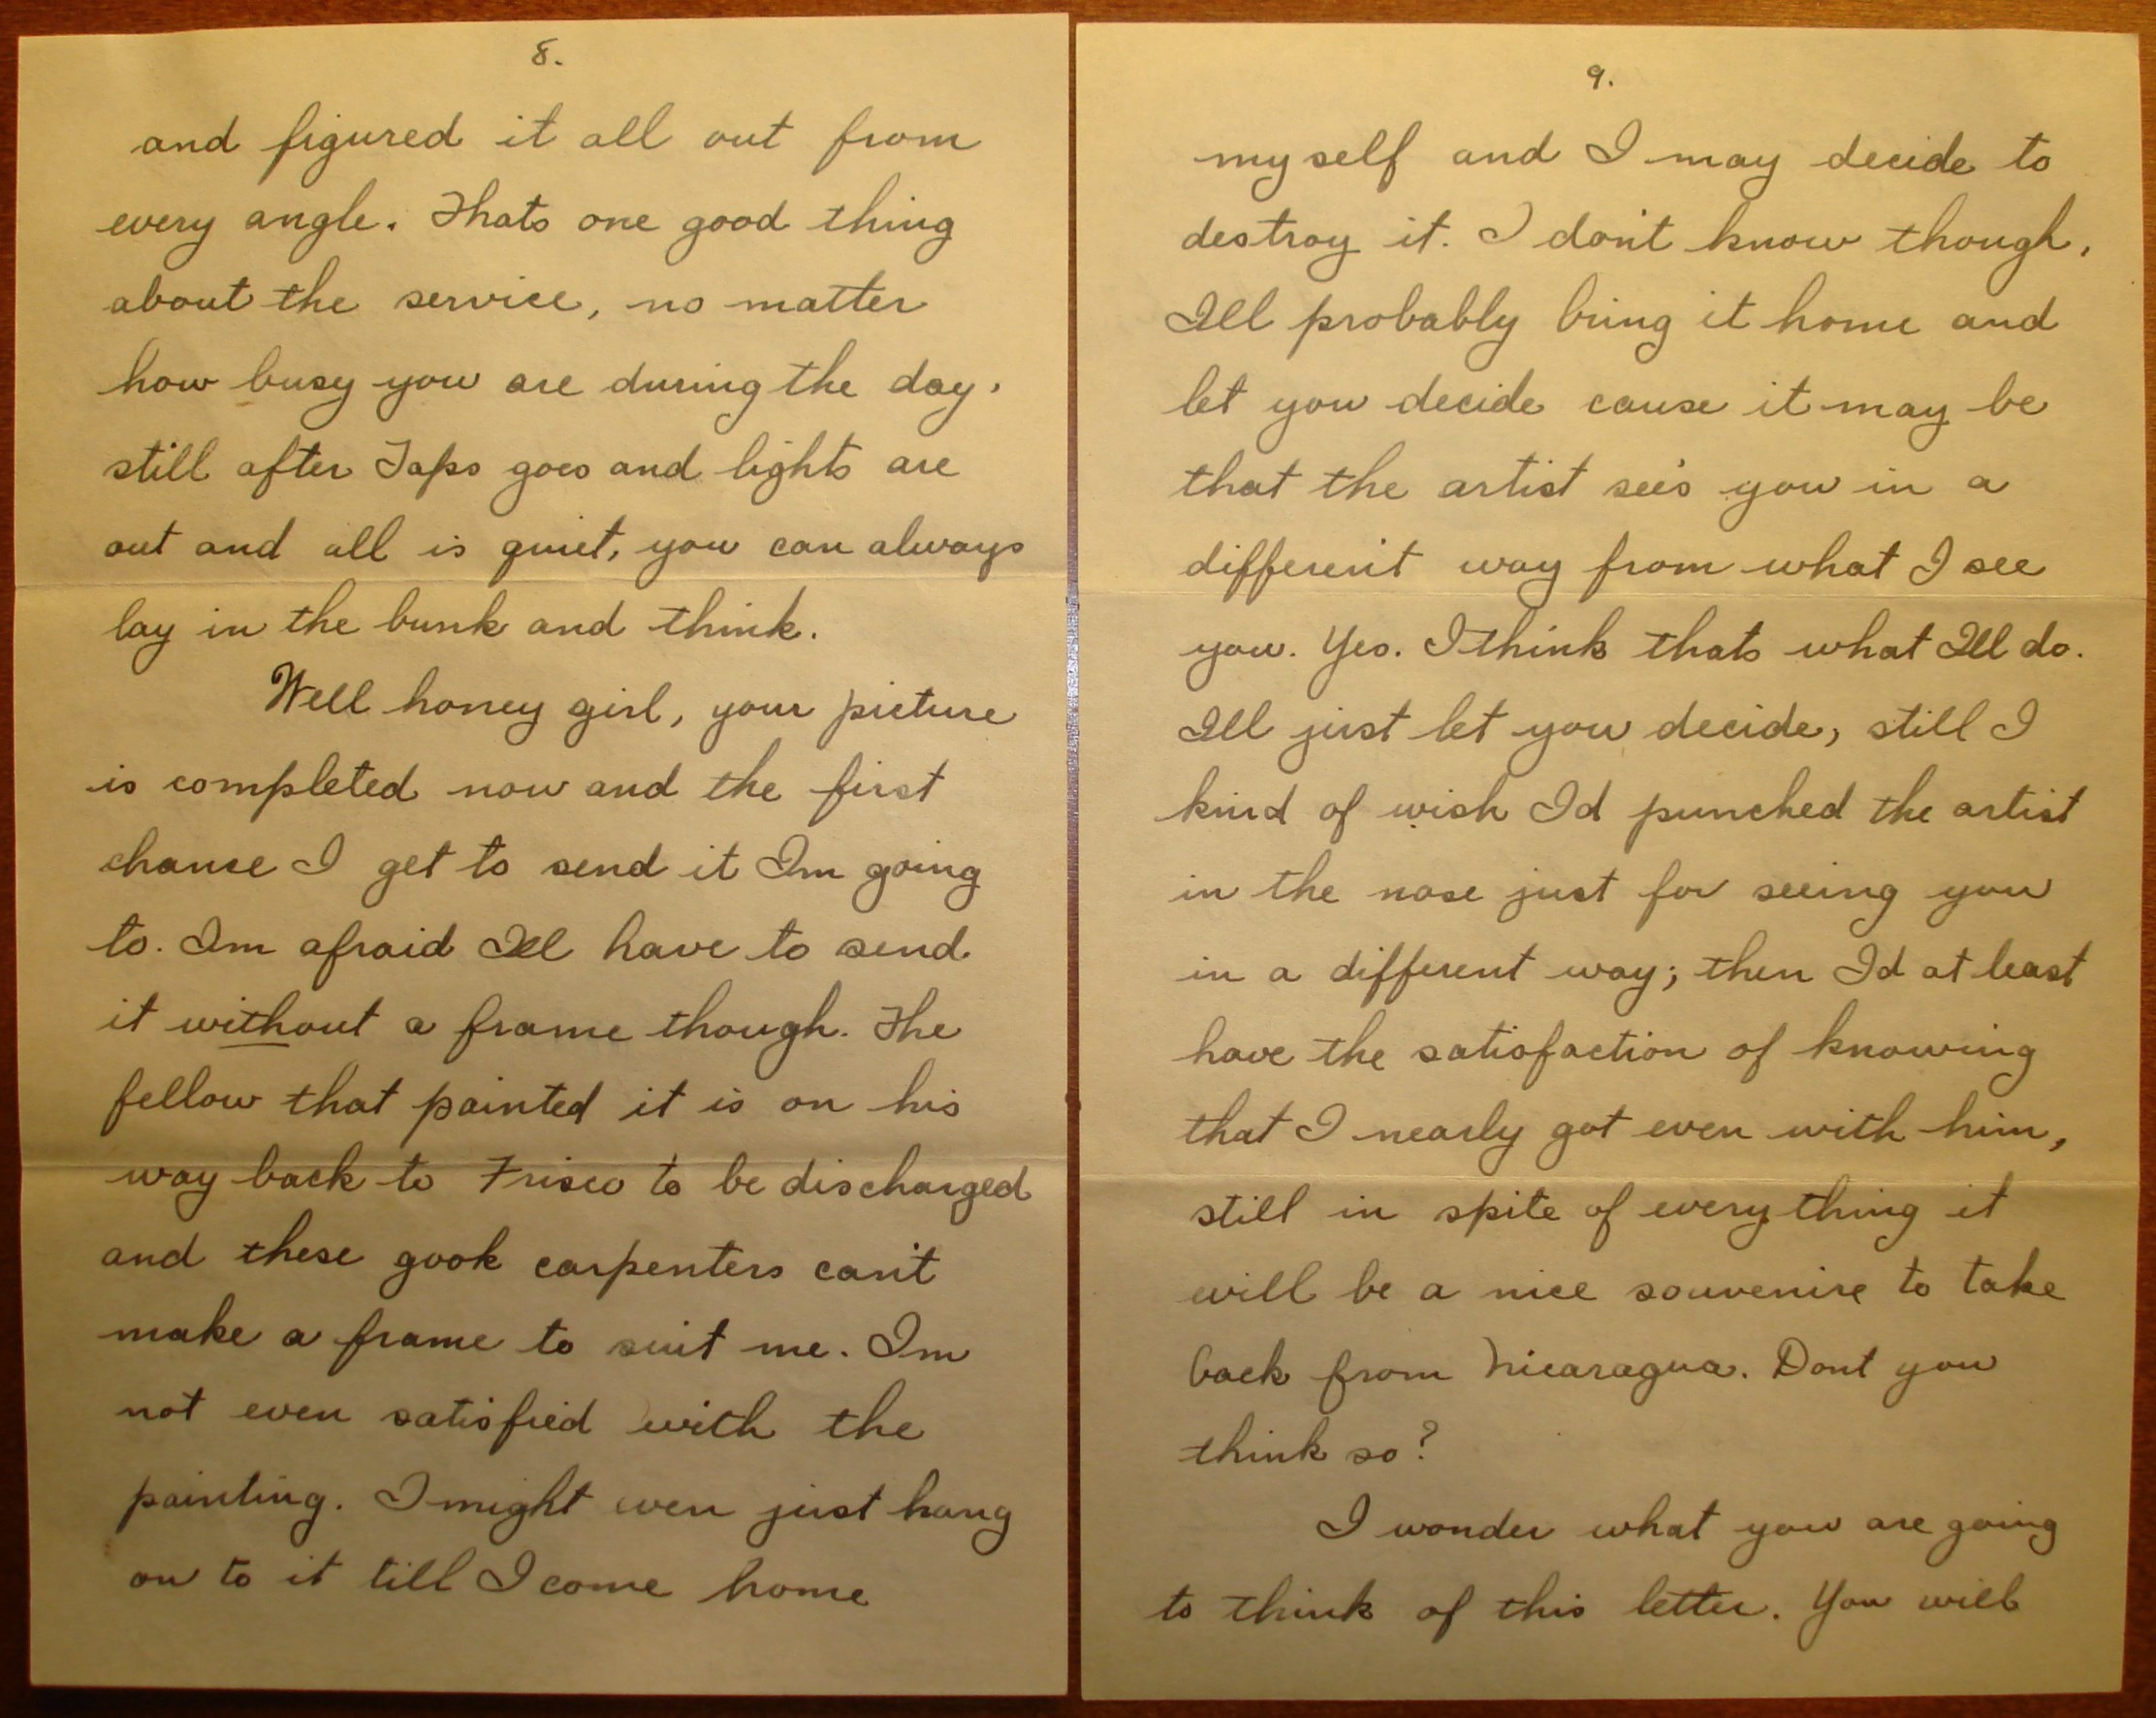 8.
and figured it all out from
every angle. Thats one good thing
about the service, no matter
how busy you are during the day,
still after Taps goes and lights are
out and all is quiet, you can always
lay in the bunk and think.
Well honey girl, your picture
is completed now and the first
chance I get to send it Im going
to. Im afraid Ill have to send
it without a frame though. The
fellow that painted it is on his
way back to Frisco to be discharged
and these gook carpenters can't
make a frame to suit me. Im
not even satisfied with the
painting. I might even just hang
on to it till I come home
9.
myself and I may decide to
destroy it. I don't know though,
Ill probably bring it home and
let you decide cause it may be
that the artist see's you in a
different way from what I see
you. Yes. I think thats what Ill do.
Ill just let you decide, still I
kind of wish Id punched the artist
in the nose just for seeing you
in a different way; then Id at least
have the satisfaction of knowing
that I nearly got even with him,
still in spite of every thing it
will be a nice souvenire to take
back from Nicaragua. Dont you
think so?
I wonder what you are going
to think of this letter. You will